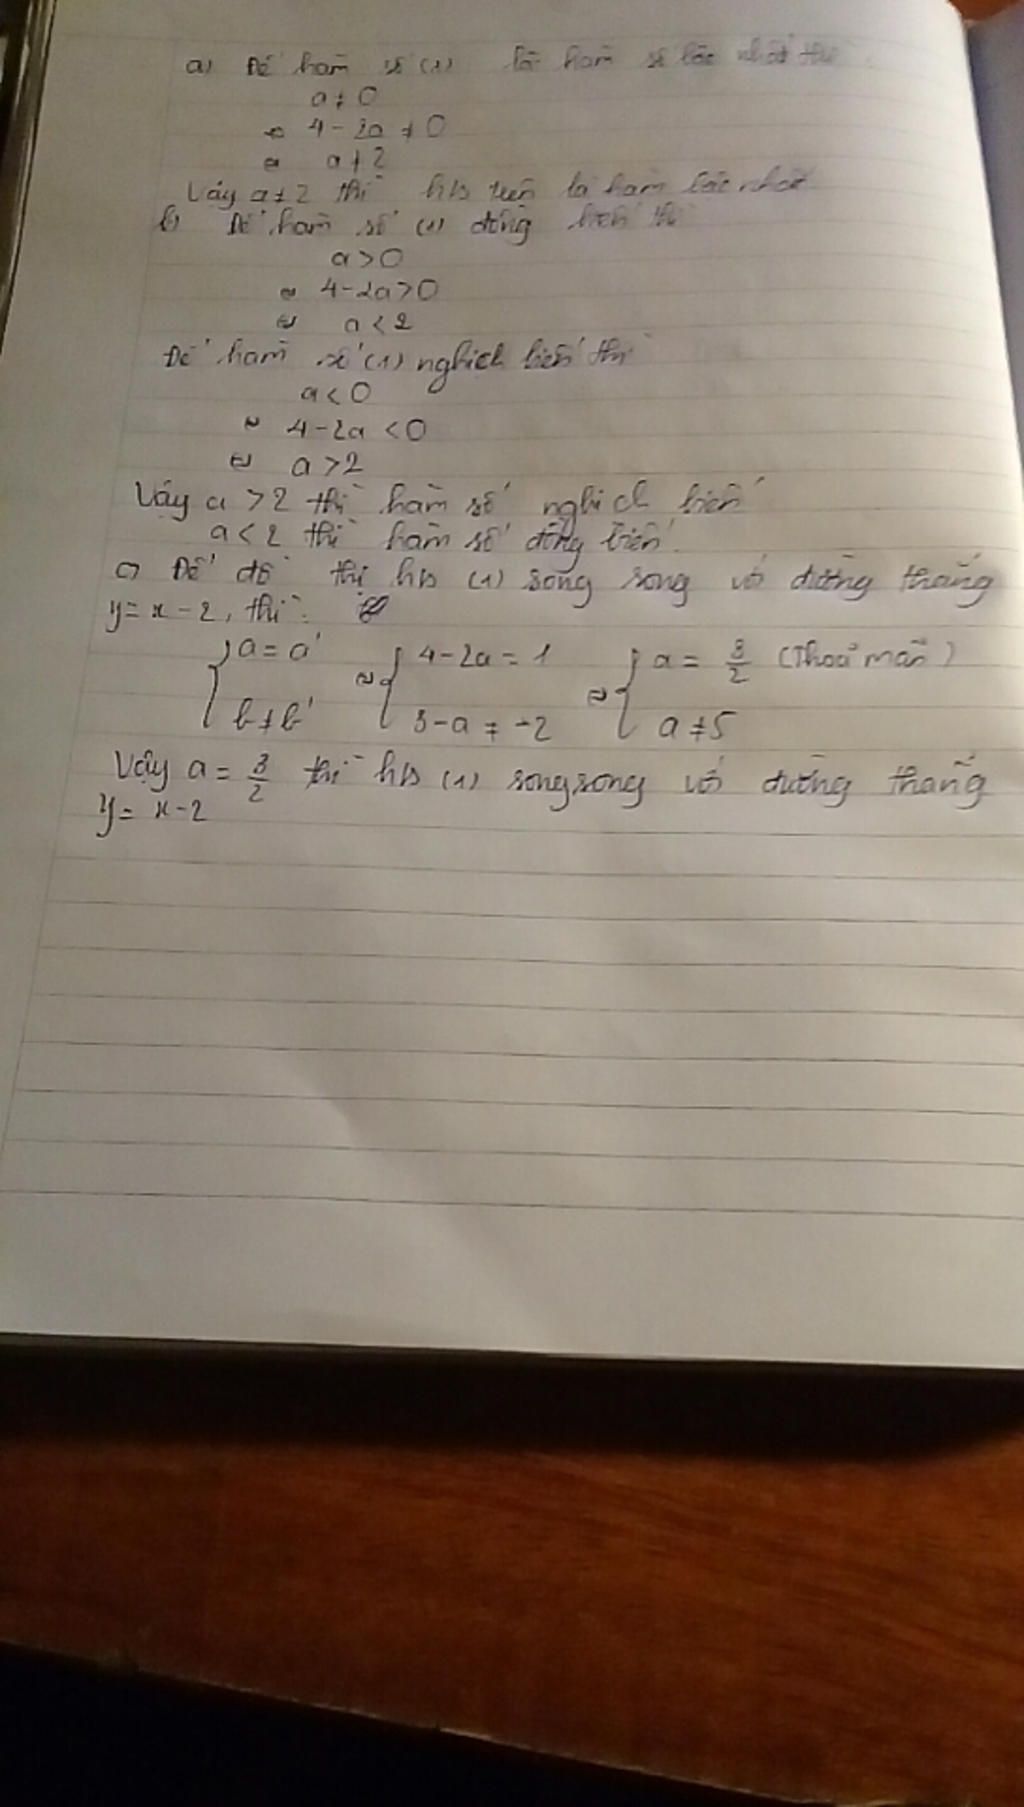 a) Để hàm số (1) là hàm số bậc nhất thì
a ≠ 0
⇔ 4 - 2a ≠ 0
⇔ a ≠ 2
Vậy a ≠ 2 thì hs trên là hàm bậc nhất
b) Để hàm số (1) đồng biến thì
a > 0
⇔ 4 - 2a > 0
⇔ a < 2
Để hàm số (1) nghịch biến thì
a < 0
⇔ 4 - 2a < 0
⇔ a > 2
Vậy a > 2 thì hàm số nghịch biến
a < 2 thì hàm số đồng biến.
c) Để đồ thị hs (1) song song với đường thẳng
y = x - 2, thì:
{ a = a' ⇔ { 4 - 2a = 1 ⇔ { a = 3/2 (Thoả mãn)
b ≠ b' 3 - a ≠ -2 a ≠ 5
Vậy a = 3/2 thì hs (1) song song với đường thẳng
y = x - 2